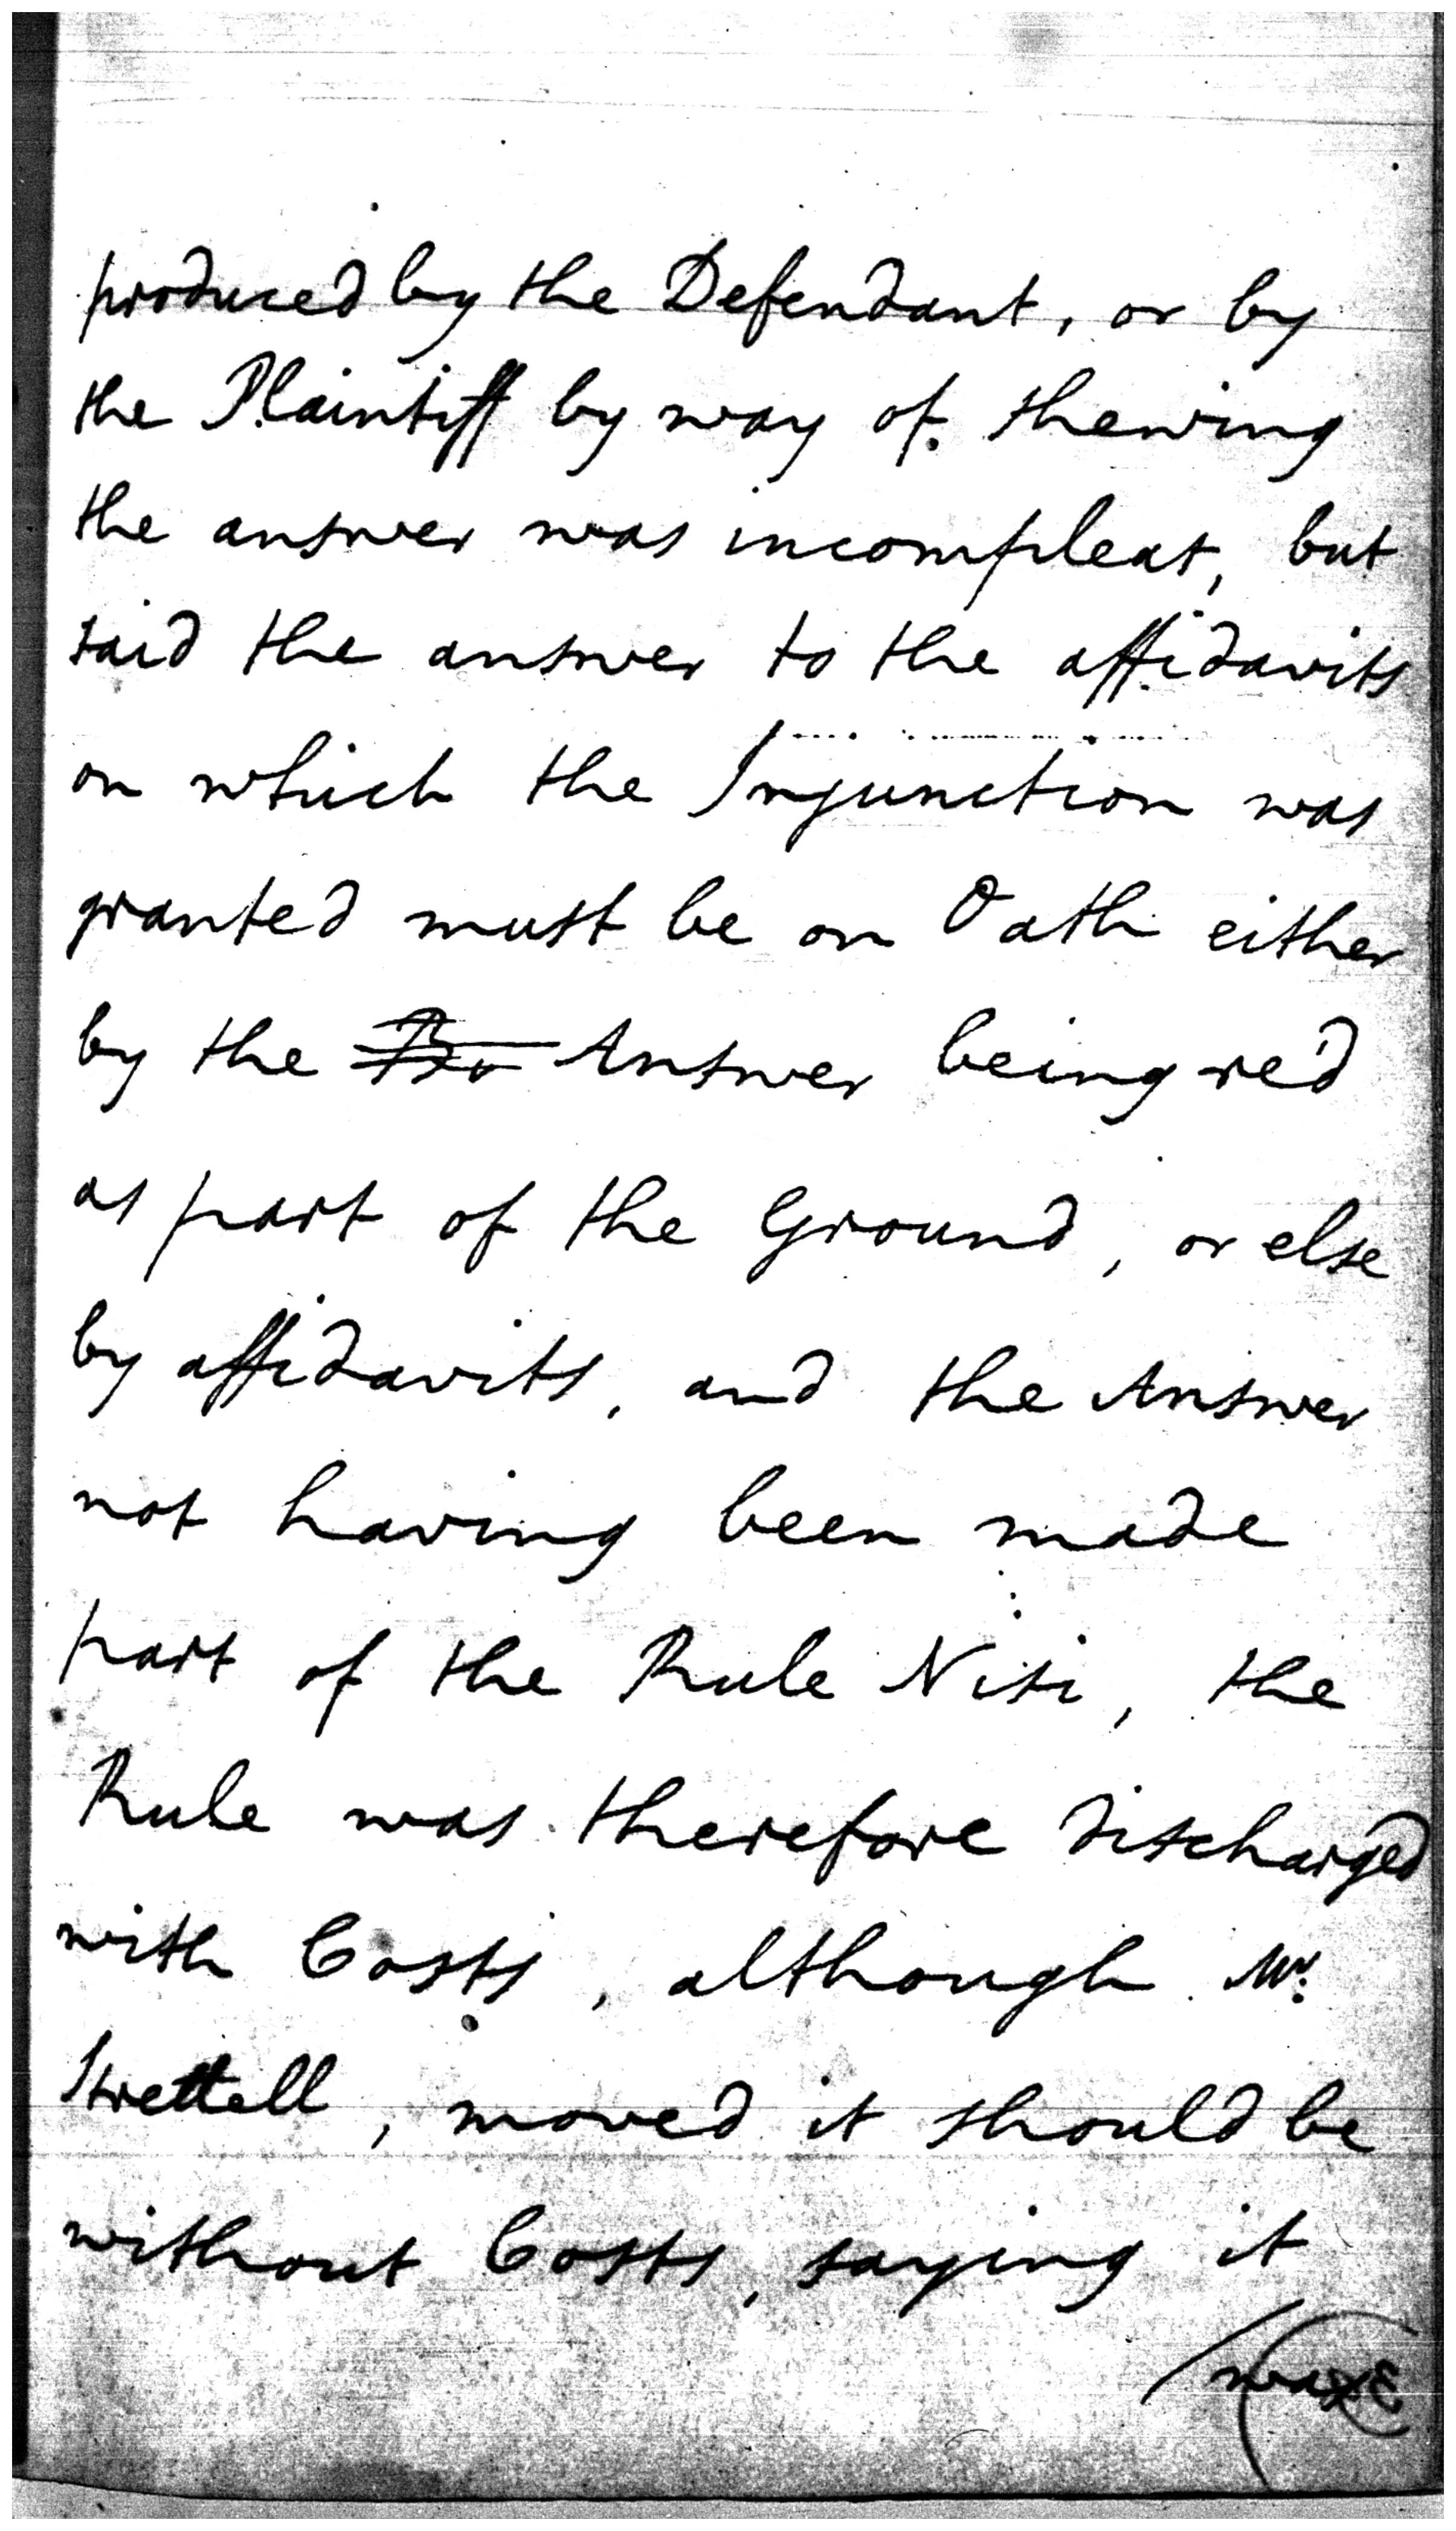 produced by the Defendant, or by
the Plaintiff by way of shewing
the answer was incompleat, but
said the answer to the affidavits
on which the Injunction was
granted must be on Oath either
by the Answer being red
as part of the Ground, or else
by affidavits, and the Answer
not having been made
part of the Rule Nisi, the
Rule was therefore discharged
with Costs, although Mr.
Strettell, moved it should be
without Costs, saying it
was